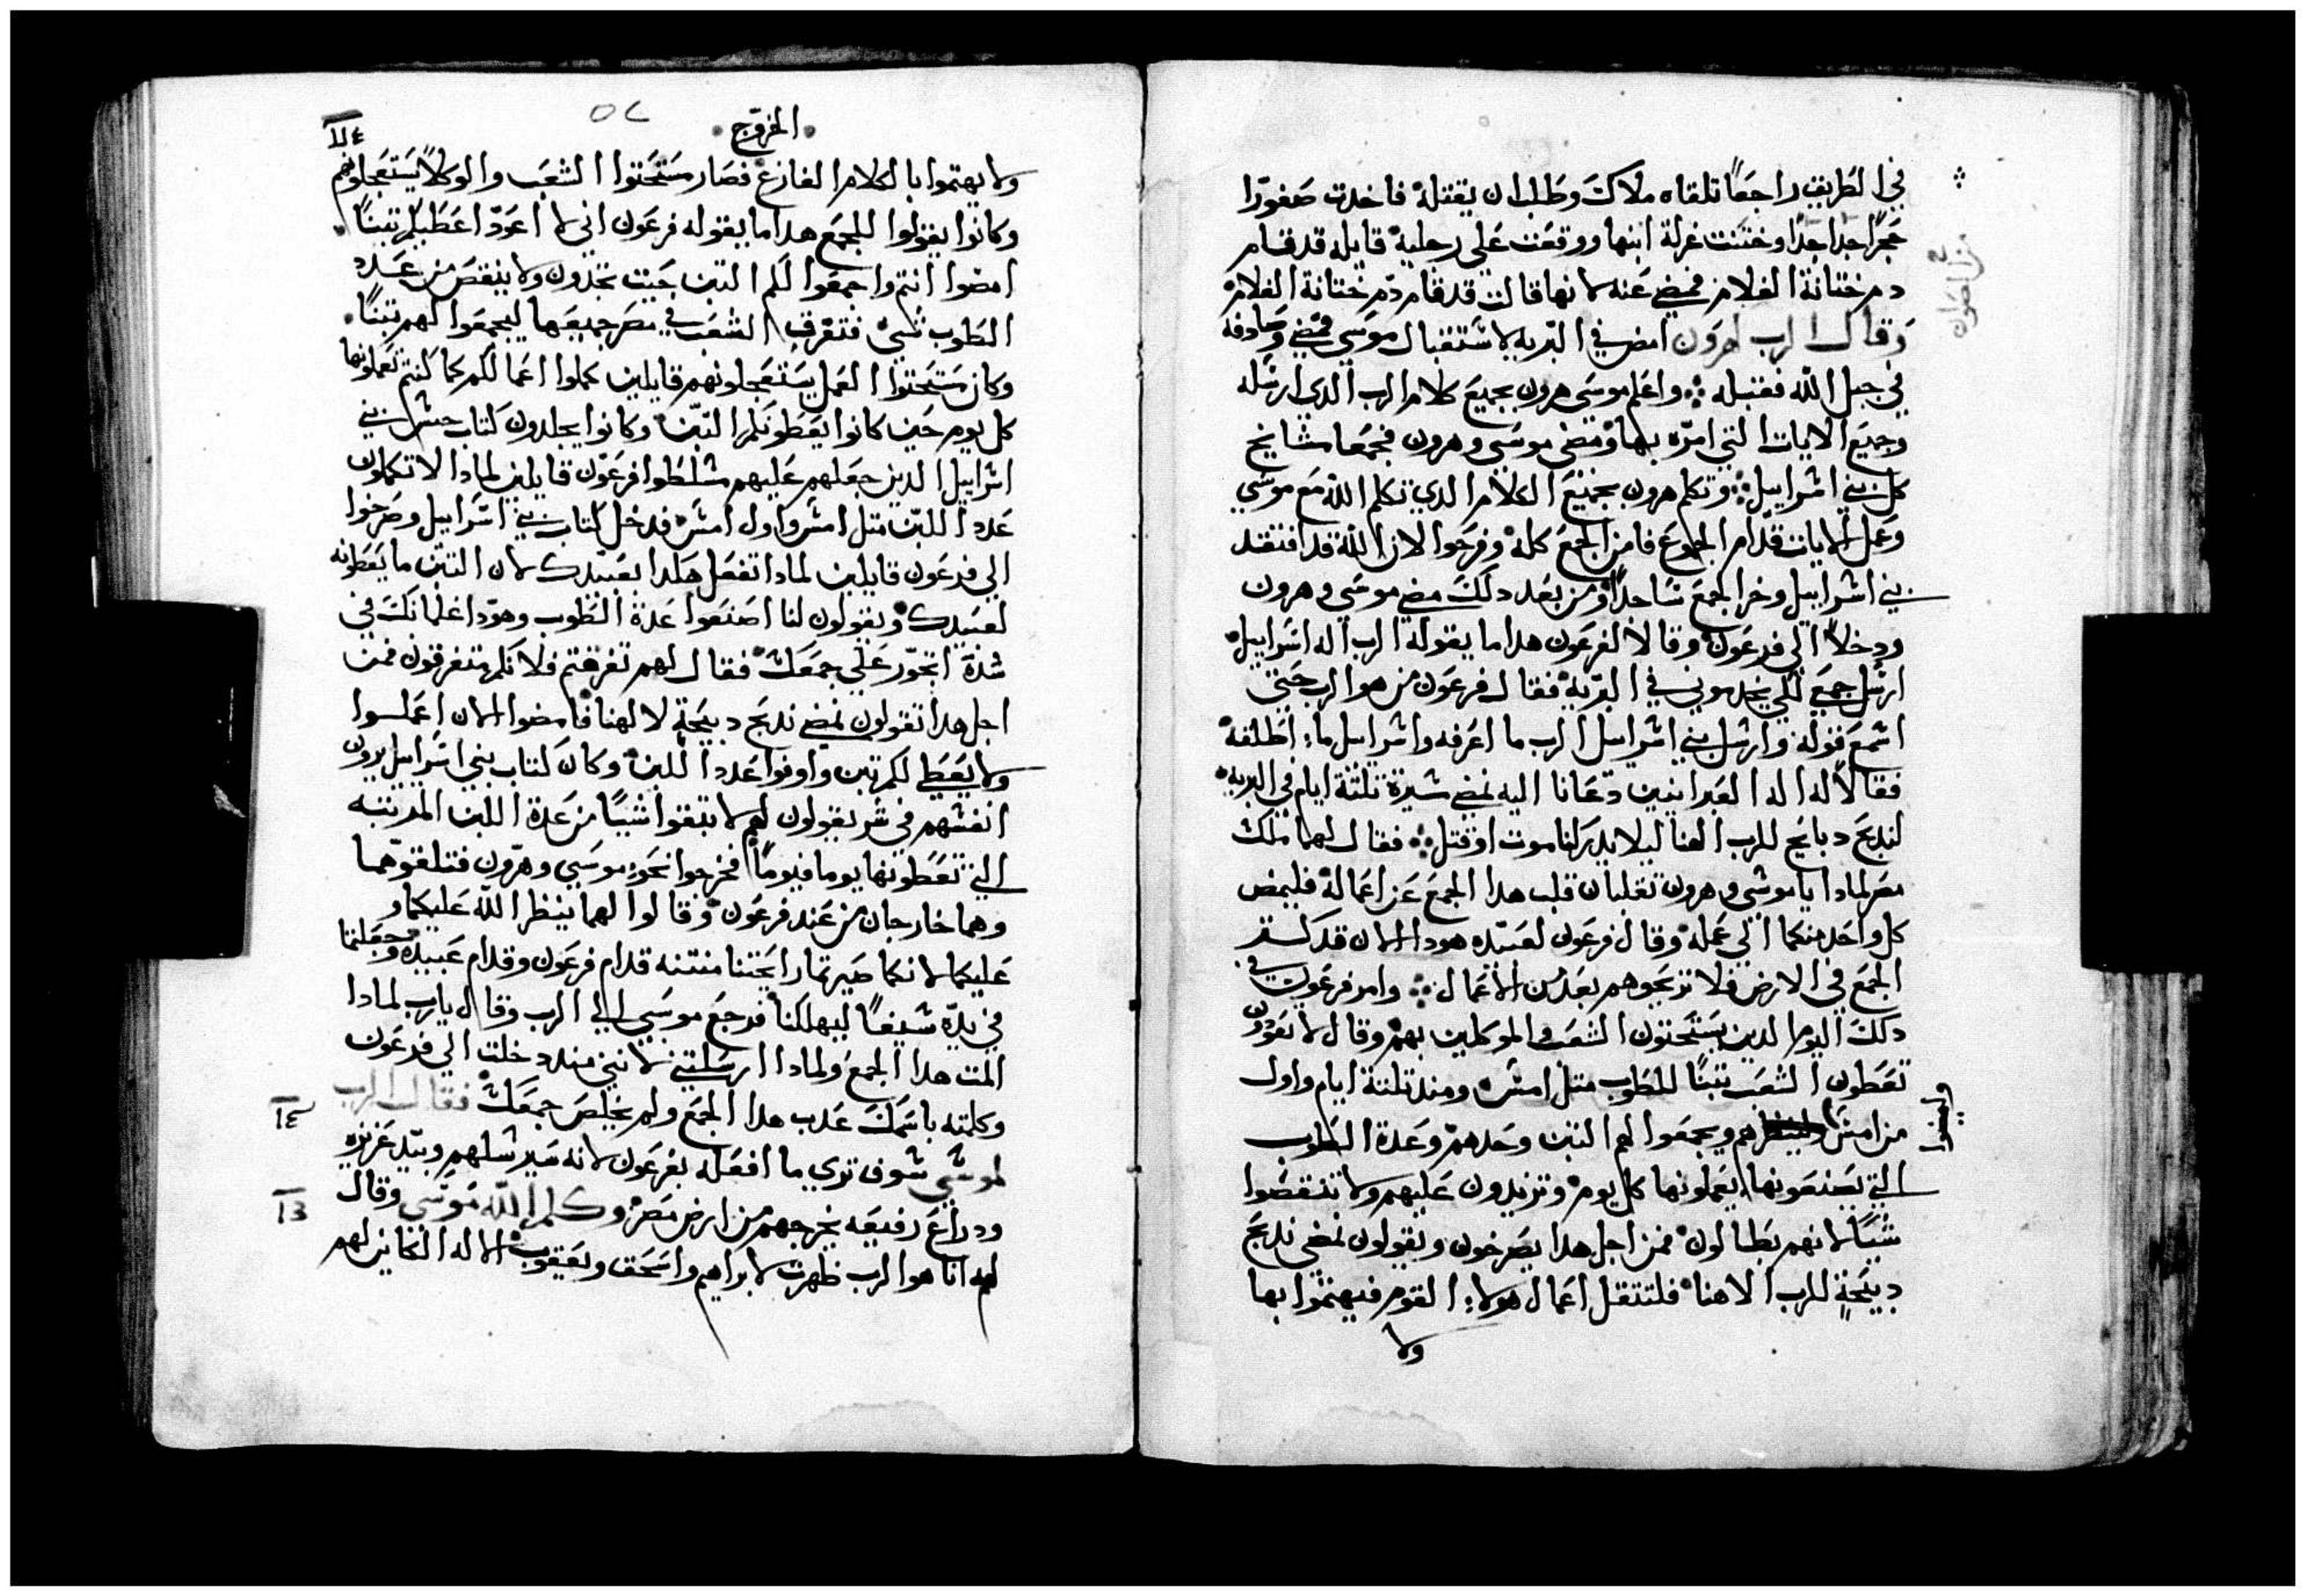 في الطريق راجعًا تلقاه ملاك وطلب ان يقتله فاخدت صفورا
حجرًا حدا جدًا وختنت غرلة ابنها ووقعت علي رجليه قايله قد قام
دم ختانة الغلام فمضي عنه لانها قالت قد قام دم ختانة الغلام
وقال الرب لهرون امضي في البريه لاستقبال موسي فمضي وصادفه
في جبل الله فقبله واعلم موسي هرون بجميع كلام الرب الدي ارسله
وجميع الايات التي امره بها ومضي موسي وهرون فجمعا مشايخ
كل بني اسراييل وتكلم هرون بجميع الكلام الدي تكلم الله مع موسي
وعمل الايات قدام الجموع فامن الجمع كله وفرحوا لان الله قد افتقد
بني اسراييل وخر الجمع ساجدًا ومن بعد دلك مضي موسي وهرون
ودخلا الي فرعون وقالا لفرعون هدا ما يقوله الرب اله اسراييل
ارسل جمعي لكي يخدموني في البريه فقال فرعون من هو الرب حتي
اسمع قوله وارسل بني اسراييل الرب ما اعرفه واسراييل ما اطلقه
فقالا له اله العبرانيين دعانا اليه نمضي مسيرة تلتة ايام في البريه
لندبح دبايح للرب الهنا ليلا يدركنا موت او قتل فقال لهما ملك
مصر لمادا يا موسي وهرون تقلبان قلب هدا الجمع عن اعماله فليمض
كل واحد منكما الي عمله وقال فرعون لعبيده هودا الان قد كتر
الجمع في الارض فلا تريحوهم بعد من الاعمال وامر فرعون في
دلك اليوم الدين يستحتون الشعب والموكلين بهم وقال لا تعودون
تعطون الشعب تبنًا للطوب متل امس ومند تلتة ايام واول
من امس هم ويجمعوا لهم التبن وحدهم وعدة الطوب
التي يصنعونها يعملونها كل يوم وتزيدون عليهم ولا تنقصوا
شيًا لانهم بطالون فمن اجل هدا يصرخون ويقولون نمضي ندبح
دبيحة للرب الاهنا فلتتقل اعمال هولاء القوم فيهتموا بها
ولا
الخروج
ولا يهتموا بالكلام الفارغ فصار مستحتوا الشعب والوكلا يستعجلونهم
وكانوا يقولوا للجمع هدا ما يقوله فرعون اني لا اعود اعطيكم تبنًا
امضوا انتم واجمعوا لكم التبن حيت تجدون ولا ينقص من عدد
الطوب شي فتفرق الشعب في مصر جميعها ليجمعوا لهم تبنًا
وكان مستحتوا العمل يستعجلونهم قايلين كملوا اعمالكم كما كنتم تعملونها
كل يوم حين كانوا يعطونكم التبن وكانوا يجلدون كتاب جنس بني
اسراييل الدين جعلهم عليهم مسلطوا فرعون قايلين لمادا لا تكملون
عدد اللبن متل امس واول امس فدخل كتاب بني اسراييل وصرخوا
الي فرعون قايلين لمادا تفعل هكدا بعبيدك لان التبن ما يعطونه
لعبيدك ويقولون لنا اصنعوا عدة الطوب وهودا غلمانك في
شدة اتجور علي جمعك فقال لهم تفرغتم فلانكم متفرغون فمن
اجل هدا تقولون نمضي ندبح دبيحة لالهنا فامضوا الان اعملوا
ولا يعطي لكم تبن واوفوا عدد اللبن وكان كتاب بني اسراييل يرون
انفسهم في شر يقولون لهم لا تبقوا شيًا من عدة اللبن المرتبه
التي تعطونها يوما فيومًا فخرجوا نحو موسي وهرون فتلقوهما
وهما خارجان من عند فرعون وقالوا لهما ينظر الله عليكما و
عليكما لانكما صيرتما رايحتنا منتنه قدام فرعون وقدام عبيده وجعلتما
في يده سيفًا ليهلكنا فرجع موسي الي الرب وقال يارب لمادا
المت هدا الجمع ولمادا ارسلتني لانني مند دخلت الي فرعون
وكلمته باسمك عدب هدا الجمع ولم يخلص جمعك فقال الرب
لموسي سوف تري ما افعله بفرعون لانه سيرسلهم وبيد عزيزه
ودراع رفيعه يخرجهم من ارض مصر وكلم الله موسي وقال
له انا هو الرب ظهرت لابراهيم واسحق ويعقوب الاله الكاين لهم